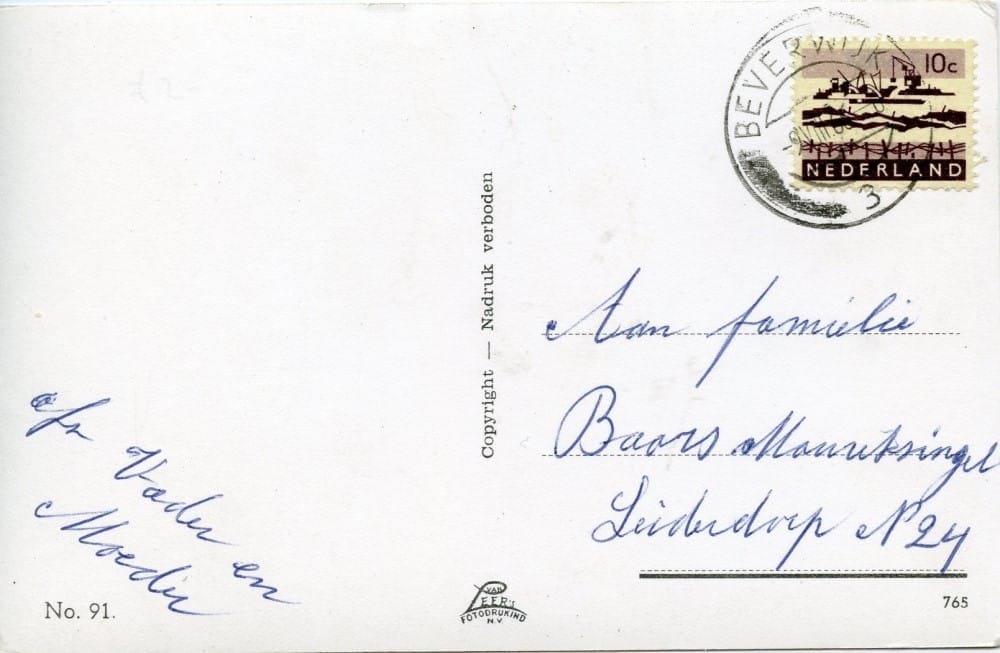 BEVERWIJK
3
10c
NEDERLAND
Copyright — Nadruk verboden
Aan familie
Baars Mauritssingel
Leiderdorp N 24
afz Vader en
Moeder
No. 91.
VAN
LEER'S
FOTODRUKIND
N.V.
765